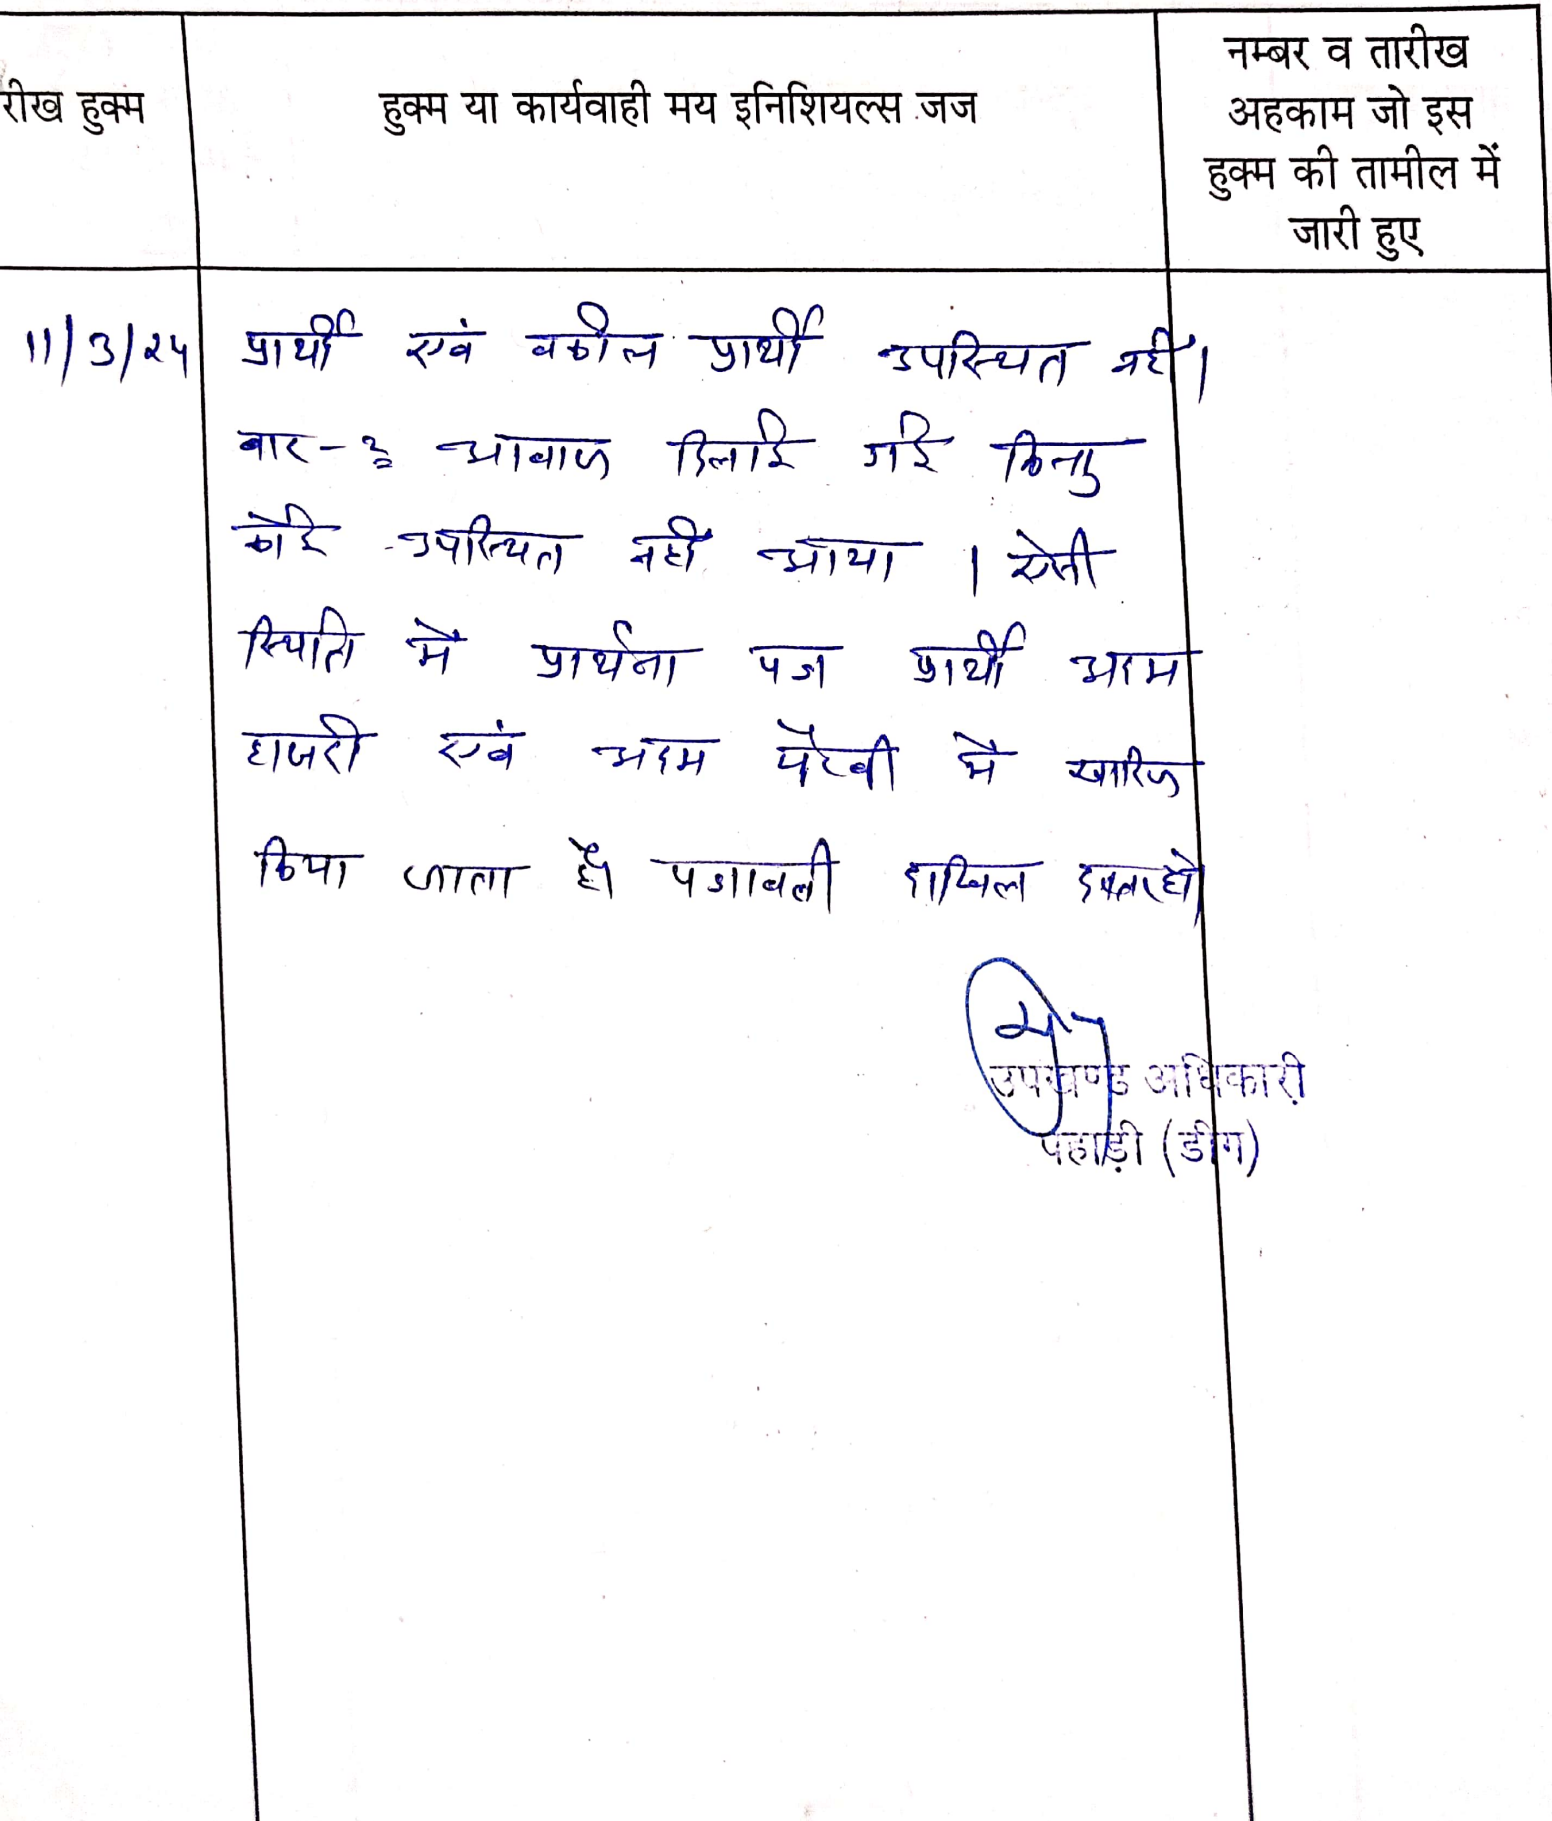 रीख हुक्म
हुक्म या कार्यवाही मय इनिशियल्स जज
नम्बर व तारीख
अहकाम जो इस
हुक्म की तामील में
जारी हुए
11/3/24
प्रार्थी एवं वकील प्रार्थी उपस्थित नहीं।
बार-२ आवाज दिलाई गई किन्तु
कोई उपस्थित नहीं आया । ऐसी
स्थिति में प्रार्थना पत्र प्रार्थी अदम
हाजरी एवं अदम पैरवी में खारिज
किया जाता है। पत्रावली दाखिल दफ्तर हो।
उपखण्ड अधिकारी
पहाड़ी (डीग)